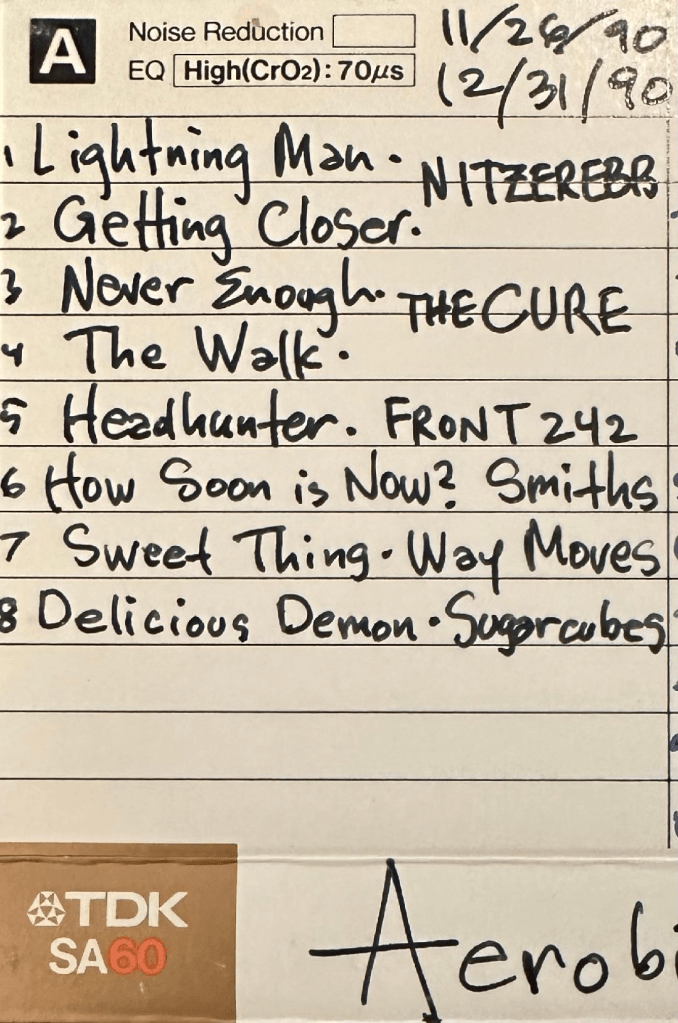 A
Noise Reduction
11/26/90
EQ High(CrO2): 70µs
12/31/90
1 Lightning Man.
NITZEREBB
2 Getting Closer.
3 Never Enough. THE CURE
4 The Walk.
5 Headhunter. FRONT 242
6 How Soon is Now? Smiths
7 Sweet Thing. Way Moves
8 Delicious Demon. Sugarcubes
TDK
SA60
Aerobi